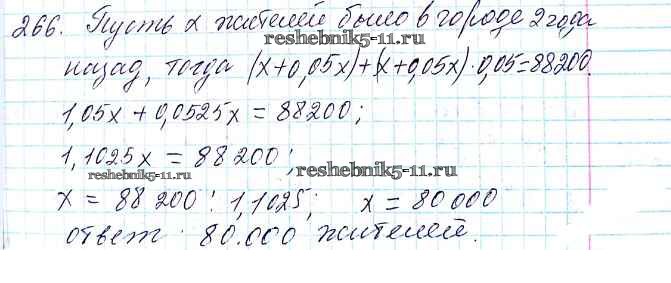 266. Пусть x жителей было в городе 2 года
reshebnik5-11.ru
назад, тогда (x+0,05x)+(x+0,05x)·0,05=88200.
1,05x + 0,0525x = 88200;
1,1025x = 88200;
reshebnik5-11.ru
reshebnik5-11.ru
x = 88200 : 1,1025; x = 80000
ответ: 80.000 жителей.